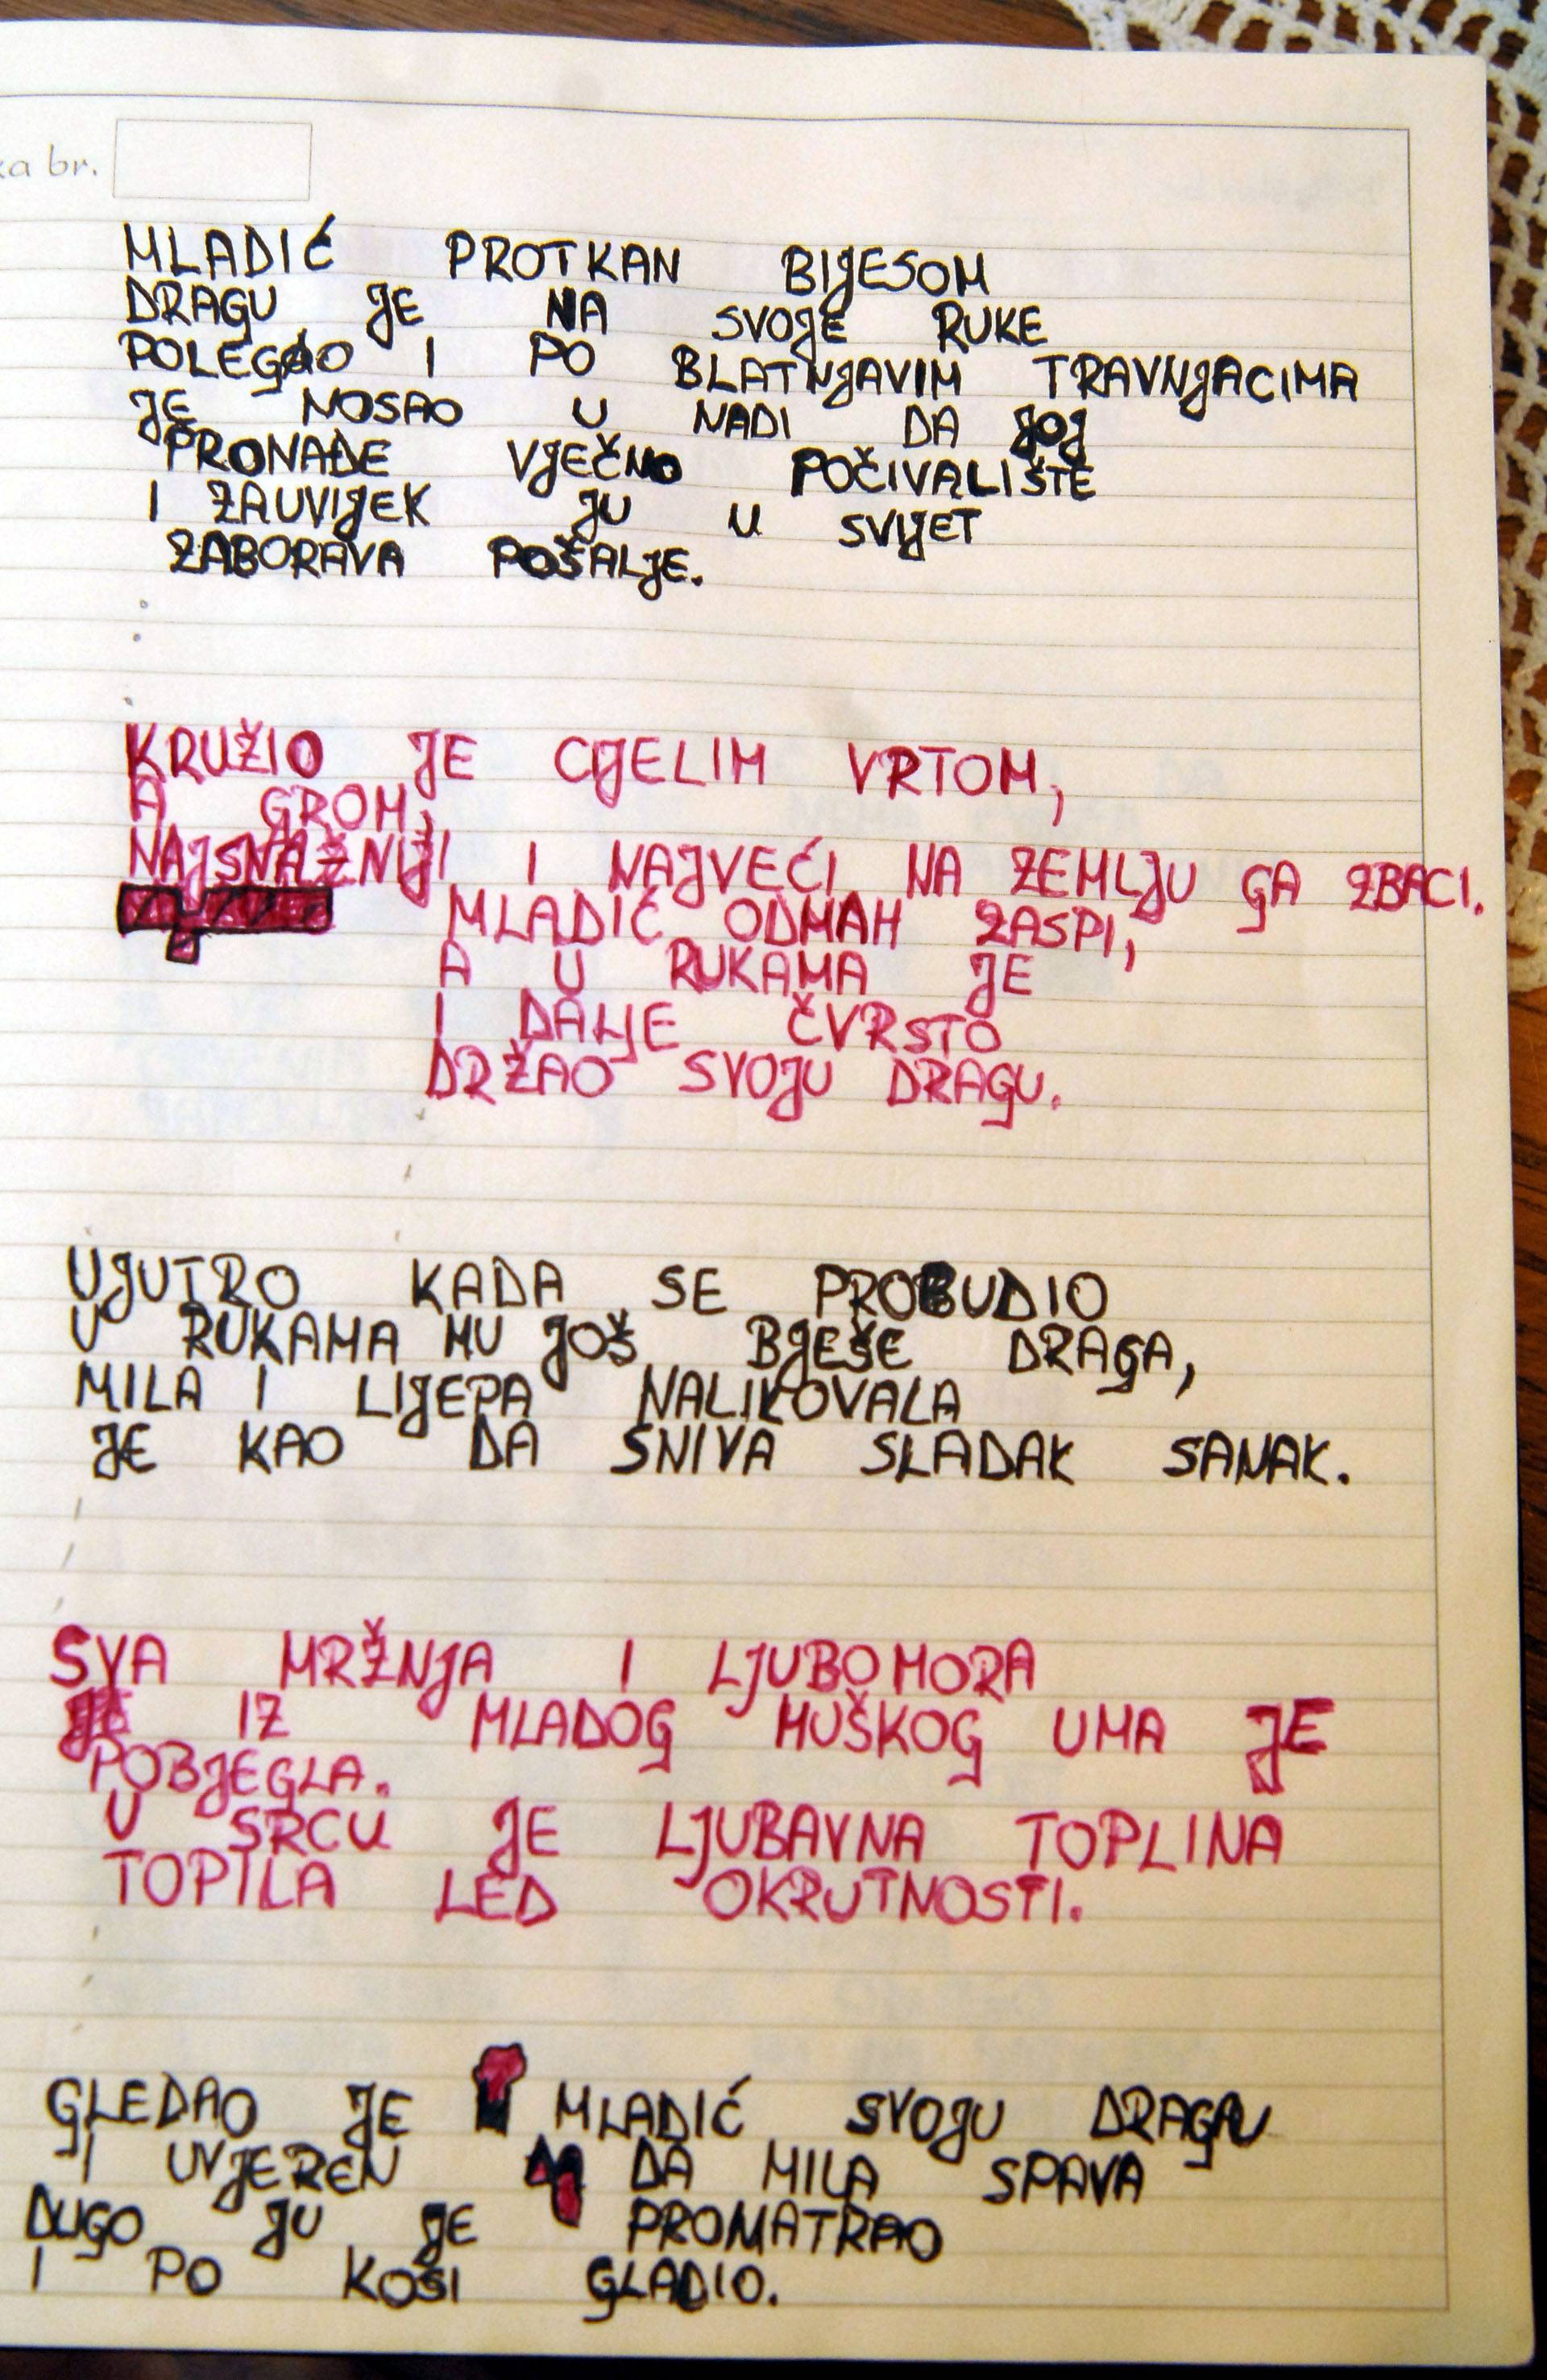 ka br.
MLADIĆ PROTKAN BIJESOM
DRAGU JE NA SVOJE RUKE
POLEGAO I PO BLATNJAVIM TRAVNJACIMA
JE NOSAO U NADI DA JOJ
PRONAĐE VJEČNO POČIVALIŠTE
I ZAUVIJEK JU U SVIJET
ZABORAVA POŠALJE.
KRUŽIO JE CIJELIM VRTOM,
A GROM,
NAJSNAŽNIJI I NAJVEĆI, NA ZEMLJU GA ZBACI.
MLADIĆ ODMAH ZASPI,
A U RUKAMA JE
I DALJE ČVRSTO
DRŽAO SVOJU DRAGU.
UJUTRO KADA SE PROBUDIO
U RUKAMA MU JOŠ BJEŠE DRAGA,
MILA I LIJEPA NALIKOVALA
JE KAO DA SNIVA SLADAK SANAK.
SVA MRŽNJA I LJUBOMORA
IZ MLADOG MUŠKOG UMA JE
POBJEGLA.
U SRCU JE LJUBAVNA TOPLINA
TOPILA LED OKRUTNOSTI.
GLEDAO JE MLADIĆ SVOJU DRAGU
I UVJEREN DA MILA SPAVA
DUGO JU JE PROMATRAO
I PO KOSI GLADIO.